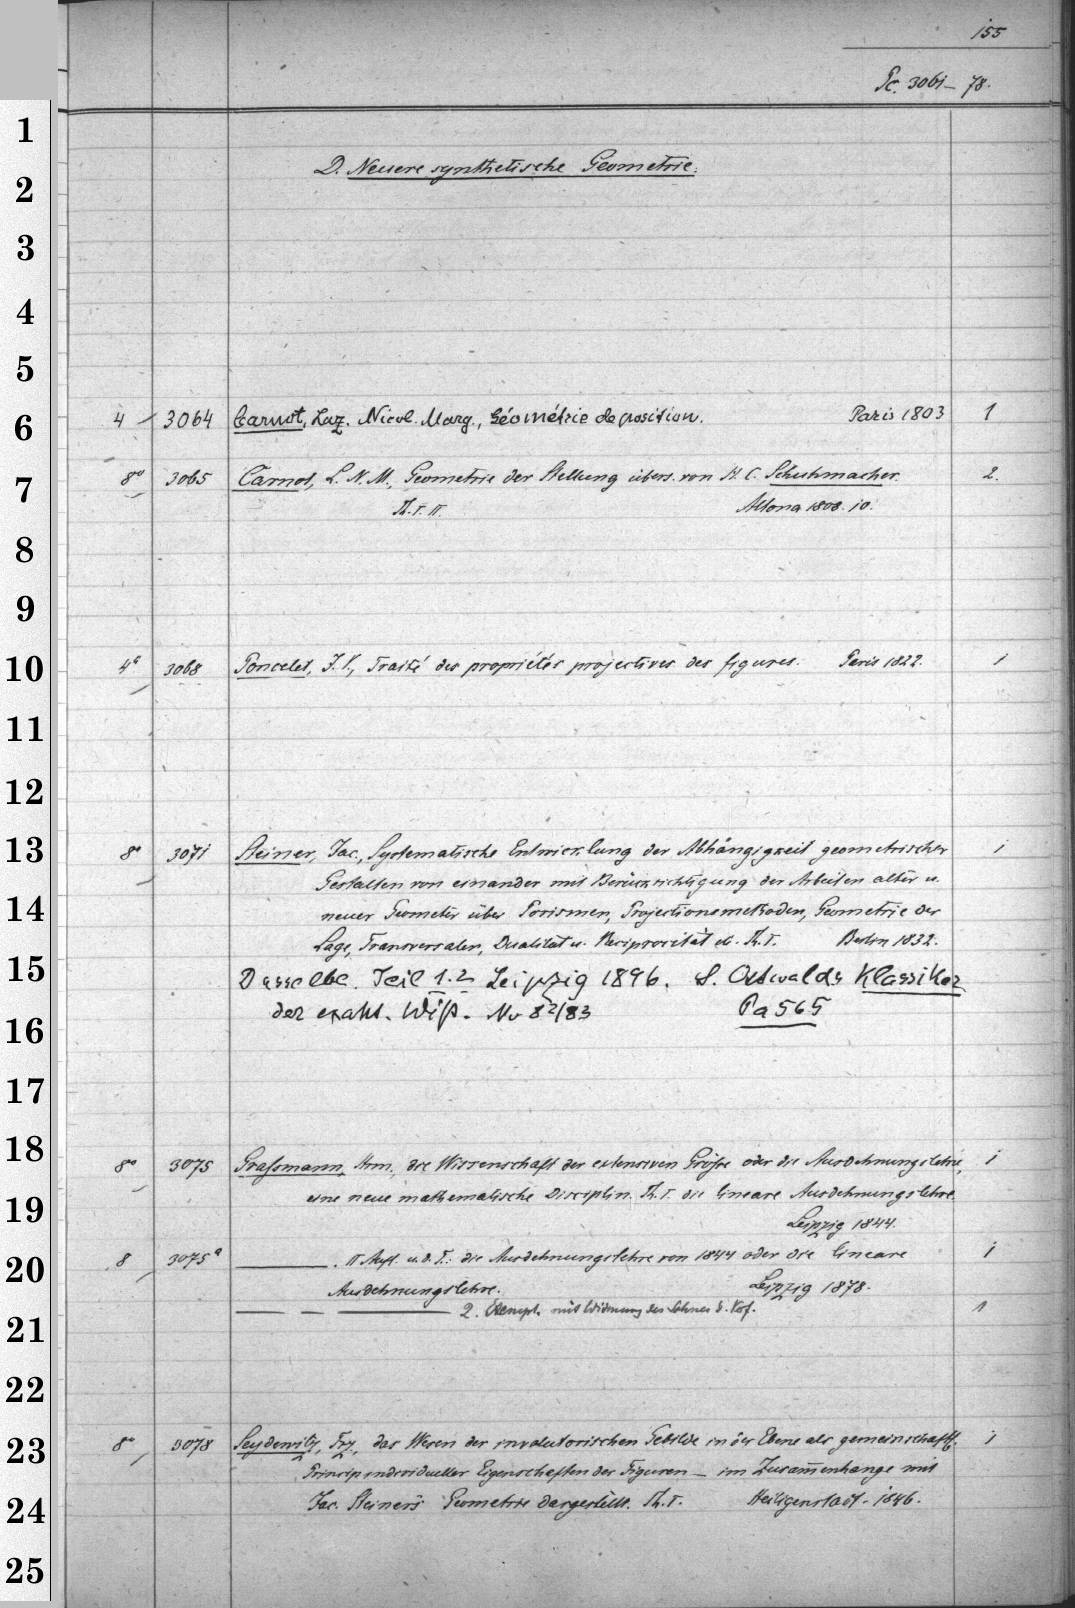 155
Pc. 3061-78.
1
D. Neuere synthetische Geometrie.
2
3
4
5
4 3064 Carnot, Laz. Nicol. Marg., Géométrie de position. Paris 1803 1
6
8° 3065 Carnot, L. N. M., Geometrie der Stellung übers. von H. C. Schuhmacher. 2.
7
Th. I. II. Altona 1808. 10.
8
9
4° 3068 Poncelet, J. V., Traité des propriétés projectives des figures. Paris 1822. 1
10
11
12
8° 3071 Steiner, Jac., Systematische Entwicklung der Abhängigkeit geometrischer 1
13
Gestalten von einander mit Berücksichtigung der Arbeiten alter u.
14
neuer Geometer über Porismen, Projectionsmethoden, Geometrie der
Lage, Transversalen, Dualität u. Reciprocität etc. Th. I. Berlin 1832.
15
Dasselbe. Teil 1.2 Leipzig 1896. S. Ostwalds Klassiker
der exakt. Wiß. Nr 82/83 Pa 565
16
17
18
8° 3075 Graßmann, Hrm., die Wissenschaft der extensiven Größe oder die Ausdehnungslehre, 1
eine neue mathematische Disciplin. Th. I. die lineare Ausdehnungslehre.
19
Leipzig 1844.
8 3075a ——. II Aufl. u. d. T.: die Ausdehnungslehre von 1844 oder die lineare 1
20
Ausdehnungslehre. Leipzig 1878.
—— — —— 2. Exempl. mit Widmung des Sohnes d. Vof. 1
21
22
8° 3078 Seydewitz, Frz., das Wesen der involutorischen Gebilde in der Ebene als gemeinschaftl. 1
23
Princip individueller Eigenschaften der Figuren — im Zusammenhange mit
Jac. Steiners Geometrie dargestellt. Th. I. Heiligenstadt. 1846.
24
25